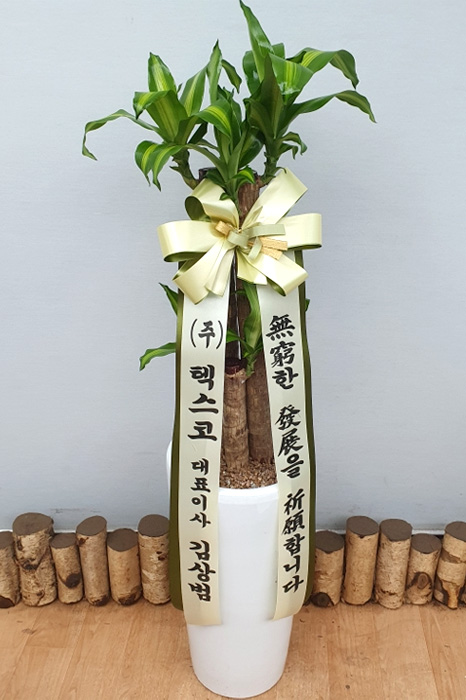 (주) 텍스코 대표이사 김상범
無窮한 發展을 祈願합니다